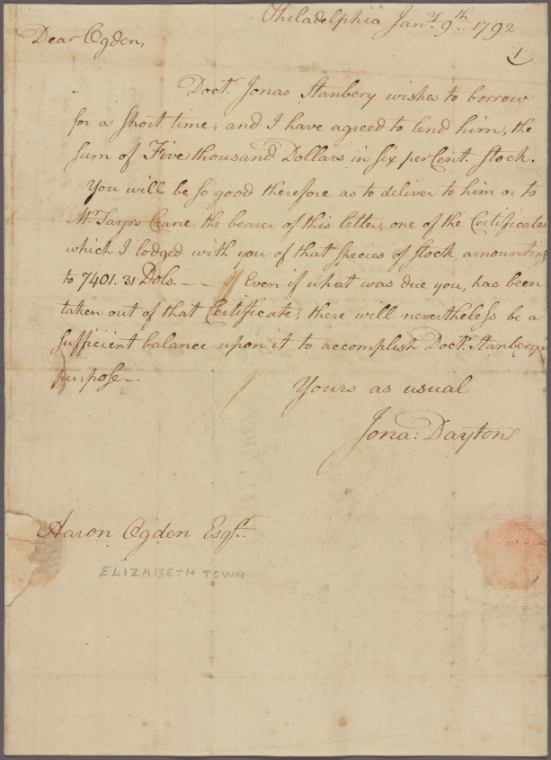 Philadelphia Jany. 9th. 1792
1
Dear Ogden,
Doct. Jonas Stanbery wishes to borrow
for a short time, and I have agreed to lend him, the
sum of Five thousand Dollars in six per Cent. stock.
You will be so good therefore as to deliver to him or to
Mr. Crane the bearer of this letter, one of the Certificates
which I lodged with you of that species of stock amounting
to 7401.31 Dols. — Even if what was due you, has been
taken out of that Certificate, there will nevertheless be a
sufficient balance upon it to accomplish Doct. Stanberys
purpose —
Yours as usual
Jona: Dayton
Aaron Ogden Esqr.
ELIZABETH TOWN